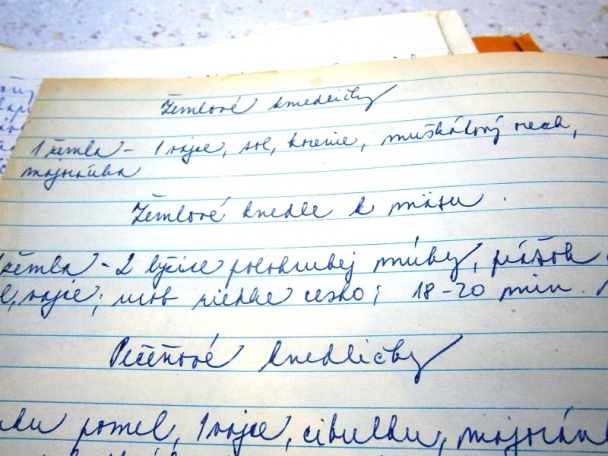 Žemlové knedličky
1 žemla - 1 vajce, soľ, korenie, muškátový orech,
majoránka
Žemlové knedle k mäsu.
žemla - 2 lyžice polohrubej múky, prášok
vajce; urob riedke cesto; 18-20 min.
Pečeňové knedličky
pomel, 1 vajce, cibuľku, majorán